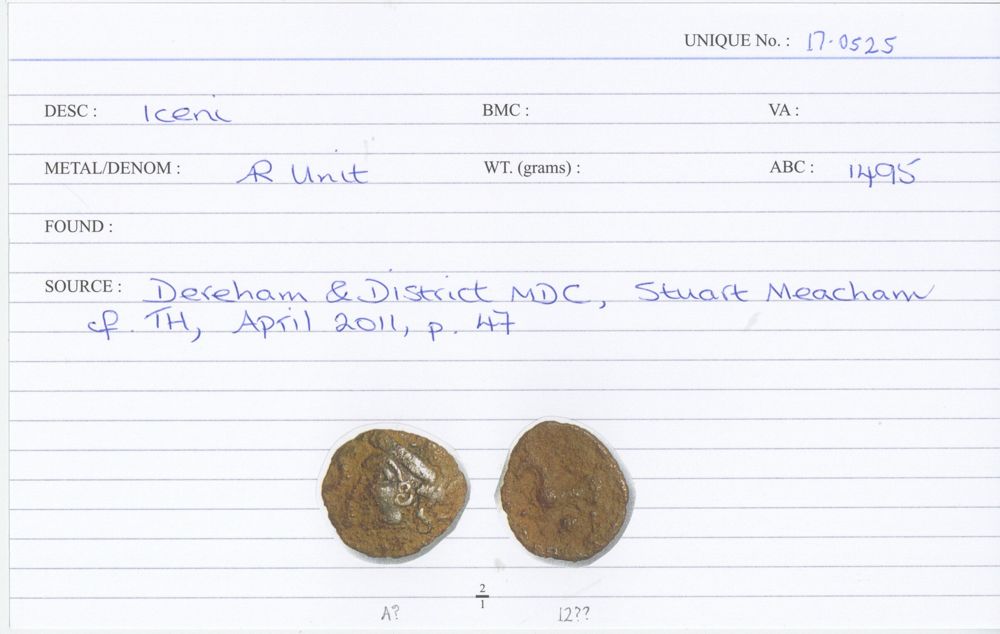 UNIQUE No. : 17·0525
DESC : Iceni BMC : VA :
METAL/DENOM : AR Unit WT. (grams) : ABC : 1495
FOUND :
SOURCE : Dereham & District MDC, Stuart Meacham
cf. TH, April 2011, p. 47
2
1
A? 12??